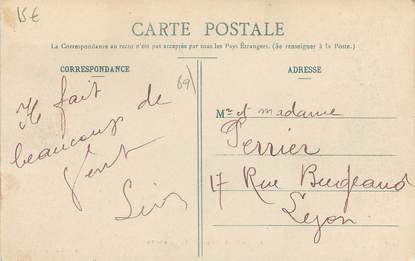 15€
CARTE POSTALE
La Correspondance au recto n'est pas acceptée par tous les Pays Étrangers. (Se renseigner à la Poste.)
CORRESPONDANCE
69
Il fait
beaucoup de
Vent
ADRESSE
Mr et madame
Perrier
17 Rue Bugeaud
Lyon